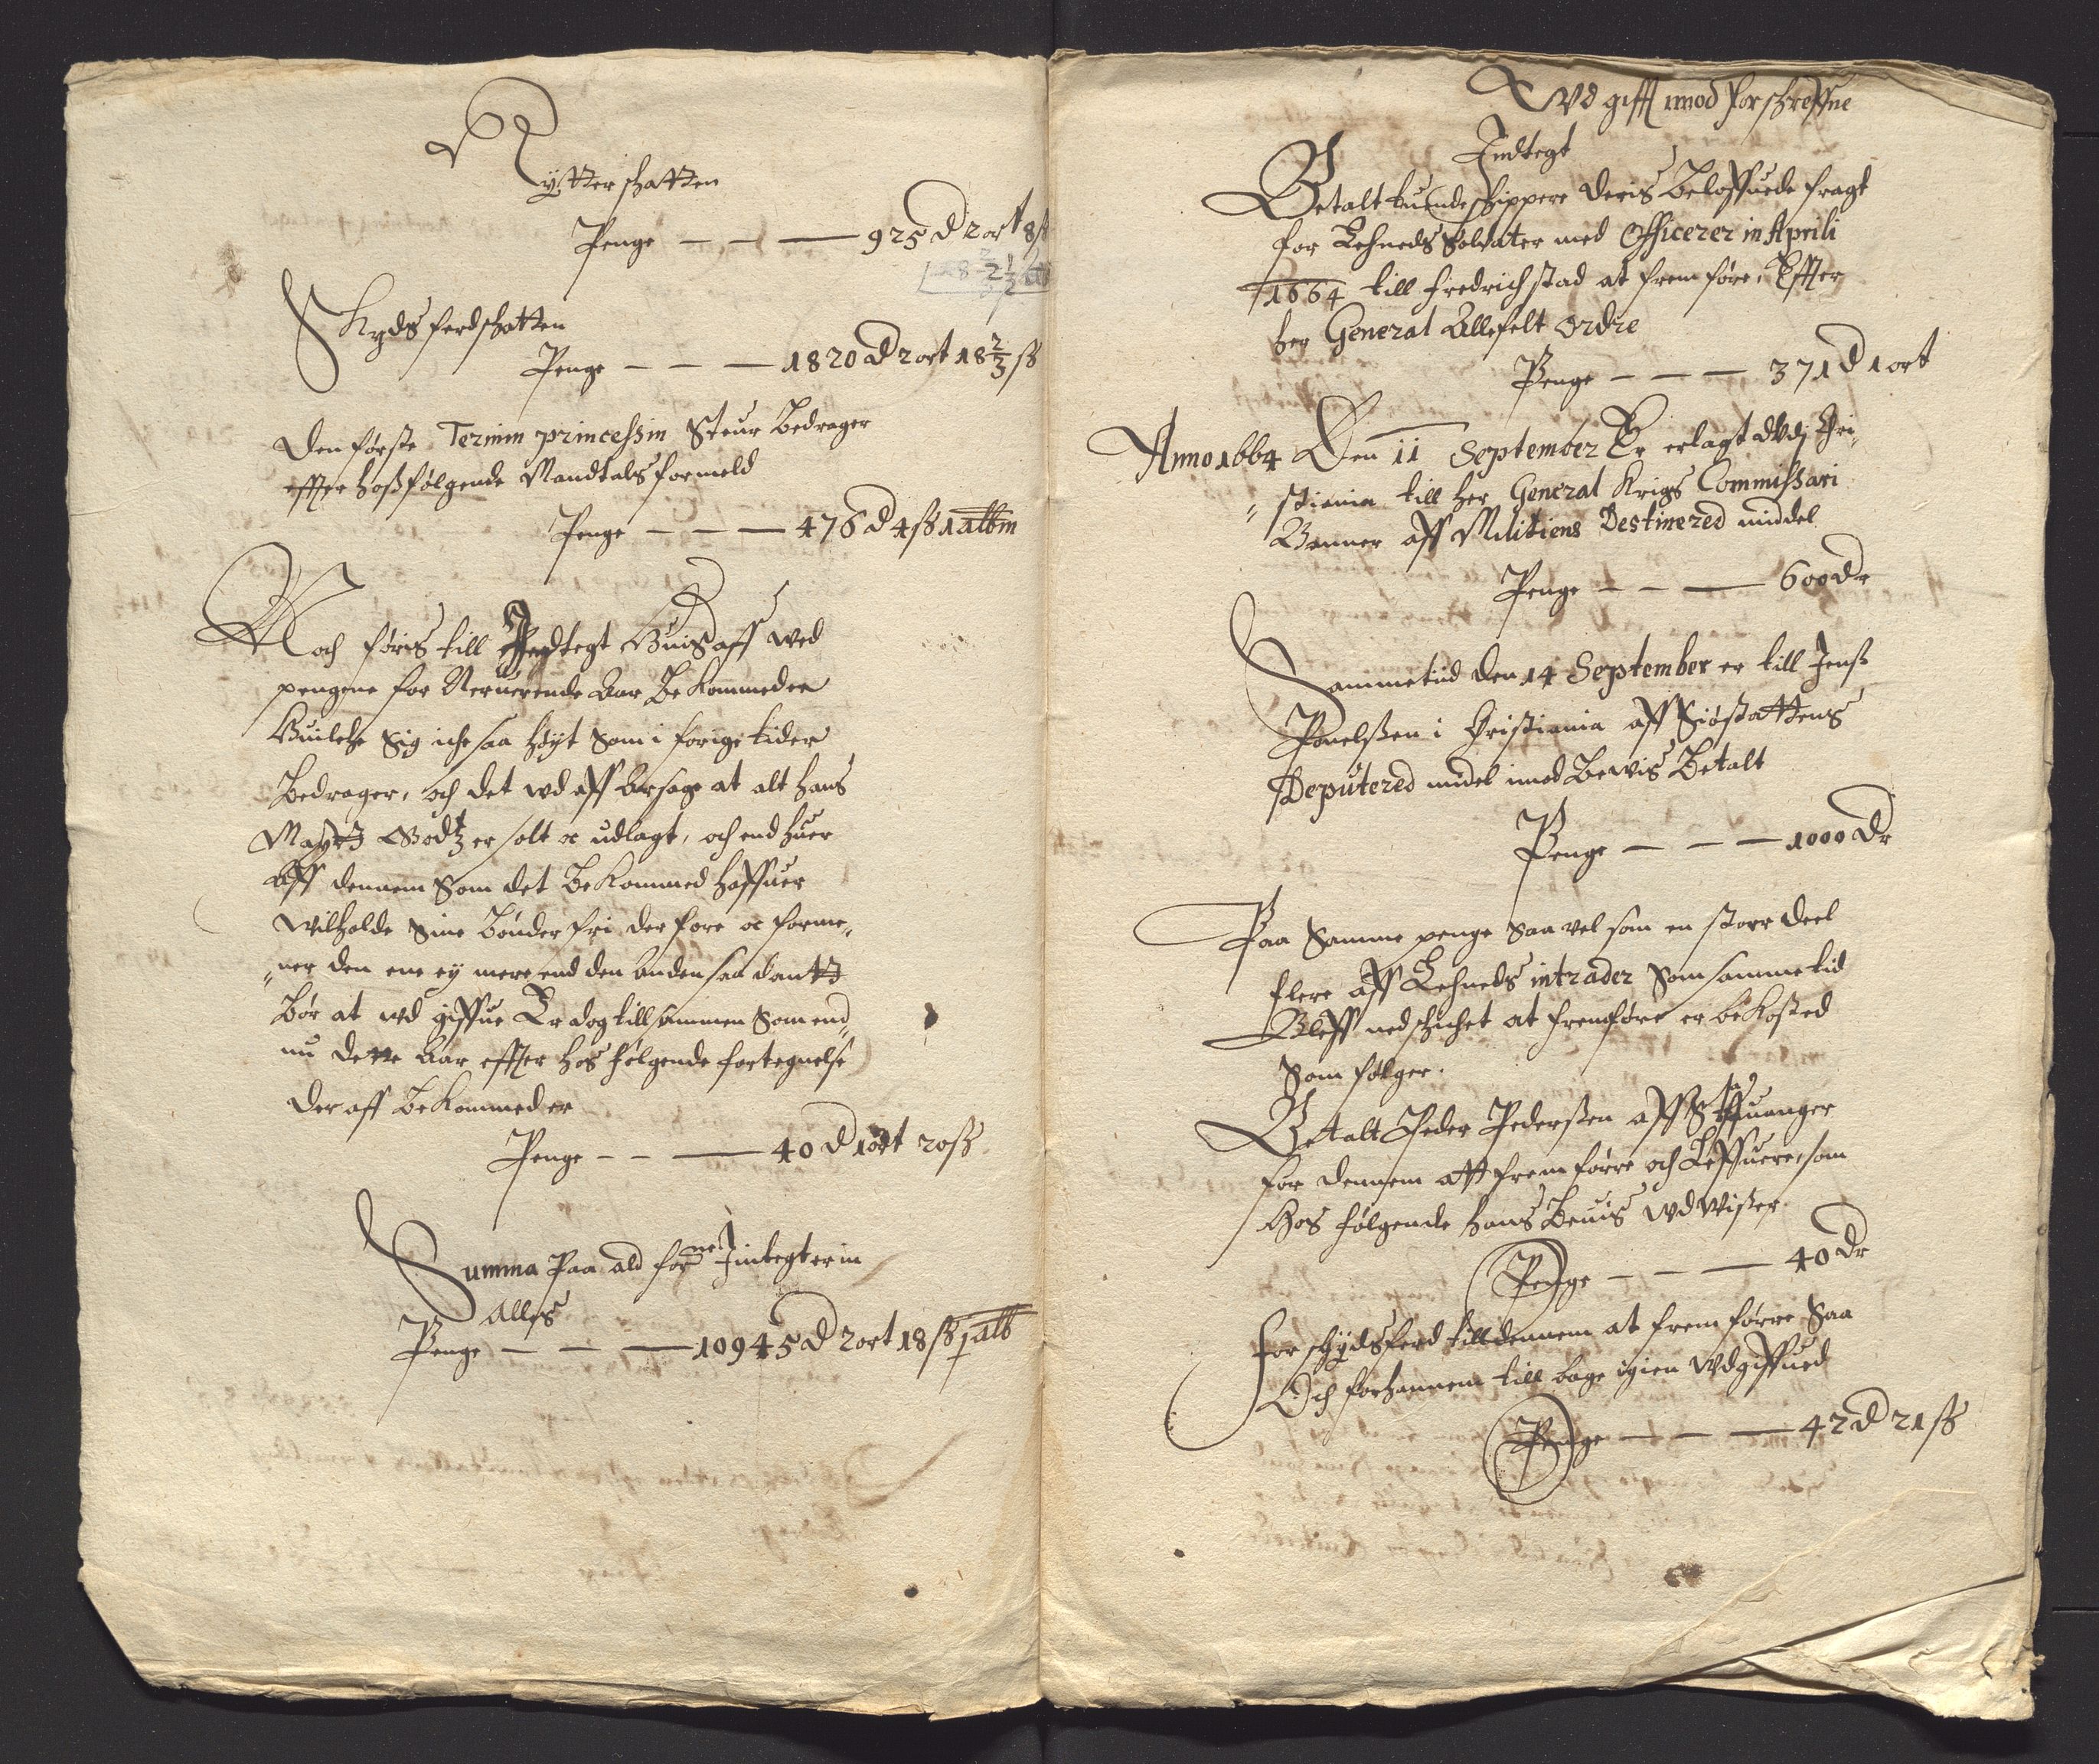 Rytter schatten
Penge — — — 925 d 2 ort 8 ß
Skyds ferdschatten
Penge — — — 1820 d 2 ort 18 2/3 ß
Den første Termin princessin Steur Bedrager
effter hoßfølgende Mandtals formeld
Penge — — — 476 d 4 ß 1 alb
Noch føris till Indtegt Huis aff wed
pengene for Neruerende Aar Bekommed er
Huilche Sig iche saa høyt Som i forige tider
Bedrager, och det wd aff Aarsage at alt hans
Maytz Godtz er solt oc udlagt, och end huer
aff dennem Som det Bekommed haffuer
wilholde Sine bønder fri der fore oc forme„
„ner den ene ey mere end den anden saadantt
Bør at wd giffue Er dog till sammen Som end„
nu dette Aar effter hos følgende fortegnelse
der aff Bekommed er
Penge — — — 40 d 1 ort 20 ß
Summa Paa ald forne Jntegter in
Alles
Penge — — — 10945 d 2 ort 18 ß j alb
Wd gifft imod forschreffne
Indtegt
Betalt tuende schippere deris Beloffuede fragt
for Lehneds Soldater med Officerer in Aprili
1664 till Fredrichstad at frem føre, Effter
her General Allefelt Ordre
Penge — — — 371 d 1 ort
Anno 1664 Den 11 September Er erlagt udj Chri„
„stiania till her General Krigs Commissari
Banner aff Militiens Destinered middel
Penge — — — 600 dr
Sammetiid den 14 September er till Jenß
Powelßen i Christiania aff Siøstattens
Deputered midel imod Bewis Betalt
Penge — — — 1000 dr
Paa Samme penge Saa vel som en storr deel
flere aff Lehneds intrader Som samme tid
Bleff nedschichet at fremføre er bekosted
Som følger.
Betalt Peder Pederßen aff Staffuanger
for dennem att frem førre och Leffuere, som
Hos følgende hans Beuis wdwißer
Penge — — — 40 dr
for schydsferd till dennem at frem førre Saa
Och for hannem till bage igien wdgiffued
Penge — — — 42 d 21 ß